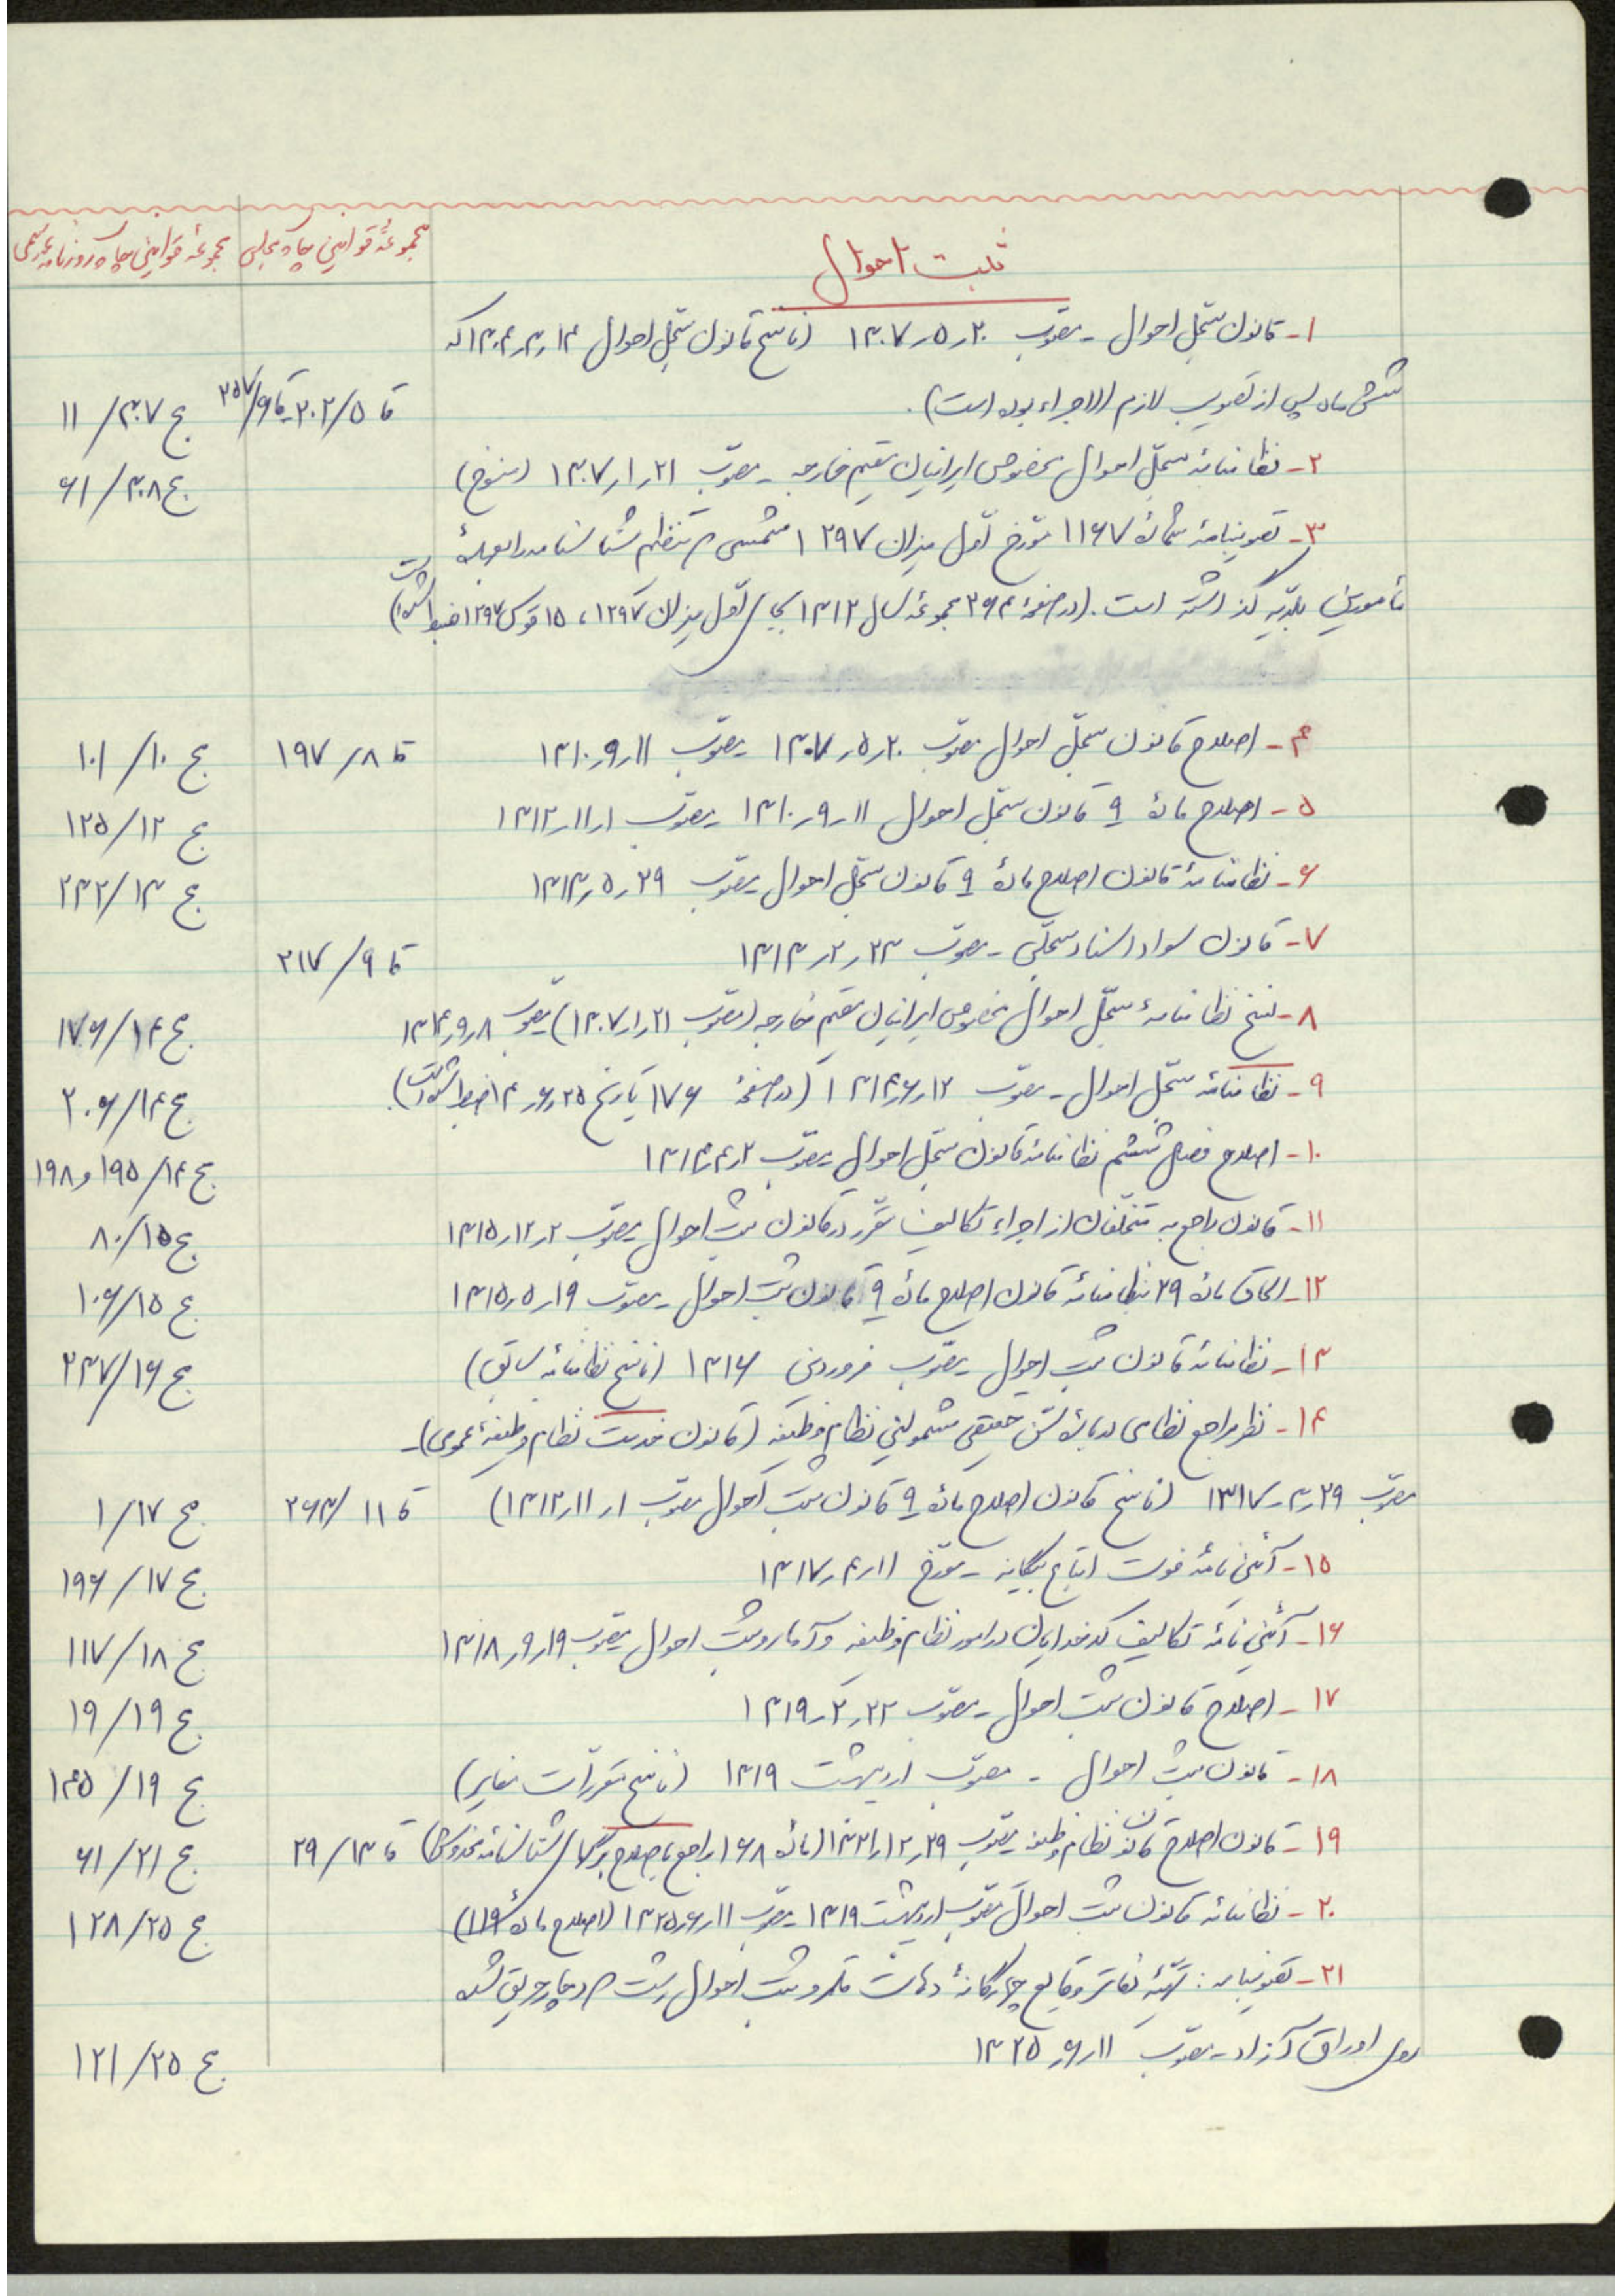 ثبت احوال
مجموعهٔ قوانین چاپ مجلس
مجموعهٔ قوانین چاپ روزنامه رسمی
۱- قانون سجلّ احوال - مصوّب ۲۰ر۵ر۱۳۰۷ (ناسخ قانون سجلّ احوال ۱۴ر۳ر۱۳۰۴ که
شش ماه پس از تصویب لازم الاجراء بوده است). قا ۲۰۲/۵ - قا ۳۵۷/۶ ج ۳۰۷/ ۱۱
۲- نظامنامهٔ سجلّ احوال مخصوص ایرانیان مقیم خارجه - مصوّب ۲۱ر۱ر۱۳۰۷ (منسوخ) ج ۳۰۸/ ۶۱
۳- تصویبنامهٔ شمارهٔ ۱۱۶۷ مورّخ اوّل میزان ۱۲۹۷ شمسی که تنظیم شناسنامه را بعهدهٔ
مأمورین بلدیّه گذاشته است. (در صفحهٔ ۲۶۴ مجموعهٔ سال ۱۳۱۲ بجای اوّل میزان ۱۲۹۷، ۱۵ قوس ۱۲۹۷ ضبط شده است)
۴- اصلاح قانون سجلّ احوال مصوّب ۲۰ر۵ر۱۳۰۷ - مصوّب ۱۱ر۹ر۱۳۱۰ قا ۸/ ۱۹۷ ج ۱۰/ ۱۰۱
۵- اصلاح مادهٔ ۹ قانون سجلّ احوال ۱۱ر۹ر۱۳۱۰ - مصوّب ۱ر۱۱ر۱۳۱۲ ج ۱۲/ ۱۲۵
۶- نظامنامهٔ قانون اصلاح مادهٔ ۹ قانون سجلّ احوال - مصوّب ۲۹ر۵ر۱۳۱۳ ج ۱۳/ ۲۳۲
۷- قانون سواد اسناد سجلّی - مصوّب ۲۳ر۲ر۱۳۱۳ قا ۹/ ۲۱۷
۸- نسخ نظامنامهٔ سجلّ احوال مخصوص ایرانیان مقیم خارجه (مصوّب ۲۱ر۱ر۱۳۰۷) مصوّب ۸ر۹ر۱۳۱۴ ج ۱۴/ ۱۷۶
۹- نظامنامهٔ سجلّ احوال - مصوّب ۱۲ر۶ر۱۳۱۴ (در صفحهٔ ۱۷۶ بتاریخ ۲۵ر۶ر۱۴ ضبط شده است). ج ۱۴/ ۲۰۶
۱۰- اصلاح فصل ششم نظامنامهٔ قانون سجلّ احوال - مصوّب ۲ر۴ر۱۳۱۴ ج ۱۴/ ۱۹۵ و ۱۹۸
۱۱- قانون راجع به متخلّفان از اجراء تکالیف مقرّر در قانون ثبت احوال - مصوّب ۲ر۱۲ر۱۳۱۵ ج ۱۵/ ۸۰
۱۲- الحاق مادهٔ ۲۹ بنظامنامهٔ قانون اصلاح مادهٔ ۹ قانون ثبت احوال - مصوّب ۱۹ر۵ر۱۳۱۵ ج ۱۵/ ۱۰۶
۱۳- نظامنامهٔ قانون ثبت احوال - مصوّب فروردین ۱۳۱۶ (ناسخ نظامنامهٔ سابق) ج ۱۶/ ۲۳۷
۱۴- نظر مراجع نظامی دربارهٔ سنّ حقیقی مشمولین نظام وظیفه (قانون خدمت نظام وظیفهٔ عمومی) -
مصوّب ۲۹ر۳ر۱۳۱۷ (ناسخ قانون اصلاح مادهٔ ۹ قانون ثبت احوال مصوّب ۱ر۱۱ر۱۳۱۲) قا ۱۱/ ۲۶۳ ج ۱۷/ ۱
۱۵- آئین نامهٔ فوت اتباع بیگانه - مورّخ ۱۱ر۴ر۱۳۱۷ ج ۱۷/ ۱۹۶
۱۶- آئین نامهٔ تکالیف کدخدایان در امور نظام وظیفه و آمار و ثبت احوال - مصوّب ۱۹ر۹ر۱۳۱۸ ج ۱۸/ ۱۱۷
۱۷- اصلاح قانون ثبت احوال - مصوّب ۲۲ر۲ر۱۳۱۹ ج ۱۹/ ۱۹
۱۸- قانون ثبت احوال - مصوّب اردیبهشت ۱۳۱۹ (ناسخ مقرّرات مغایر) ج ۱۹/ ۱۴۵
۱۹- قانون اصلاح قانون نظام وظیفه - مصوّب ۲۹ر۱۲ر۱۳۲۱ (مادهٔ ۱۶۸ راجع باصلاح برگهای شناسنامهٔ مخدوش) قا ۱۳/ ۲۹ ج ۲۱/ ۶۱
۲۰- نظامنامهٔ قانون ثبت احوال مصوّب اردیبهشت ۱۳۱۹ - مصوّب ۱۱ر۶ر۱۳۲۵ (اصلاح مادهٔ ۱۱۹) ج ۲۵/ ۱۲۸
۲۱- تصویبنامه: تهیّهٔ دفاتر وقایع چهارگانهٔ دهات قلمرو ثبت احوال رشت که دچار حریق شده
روی اوراق آزاد - مصوّب ۱۱ر۶ر۱۳۲۵ ج ۲۵/ ۱۲۱